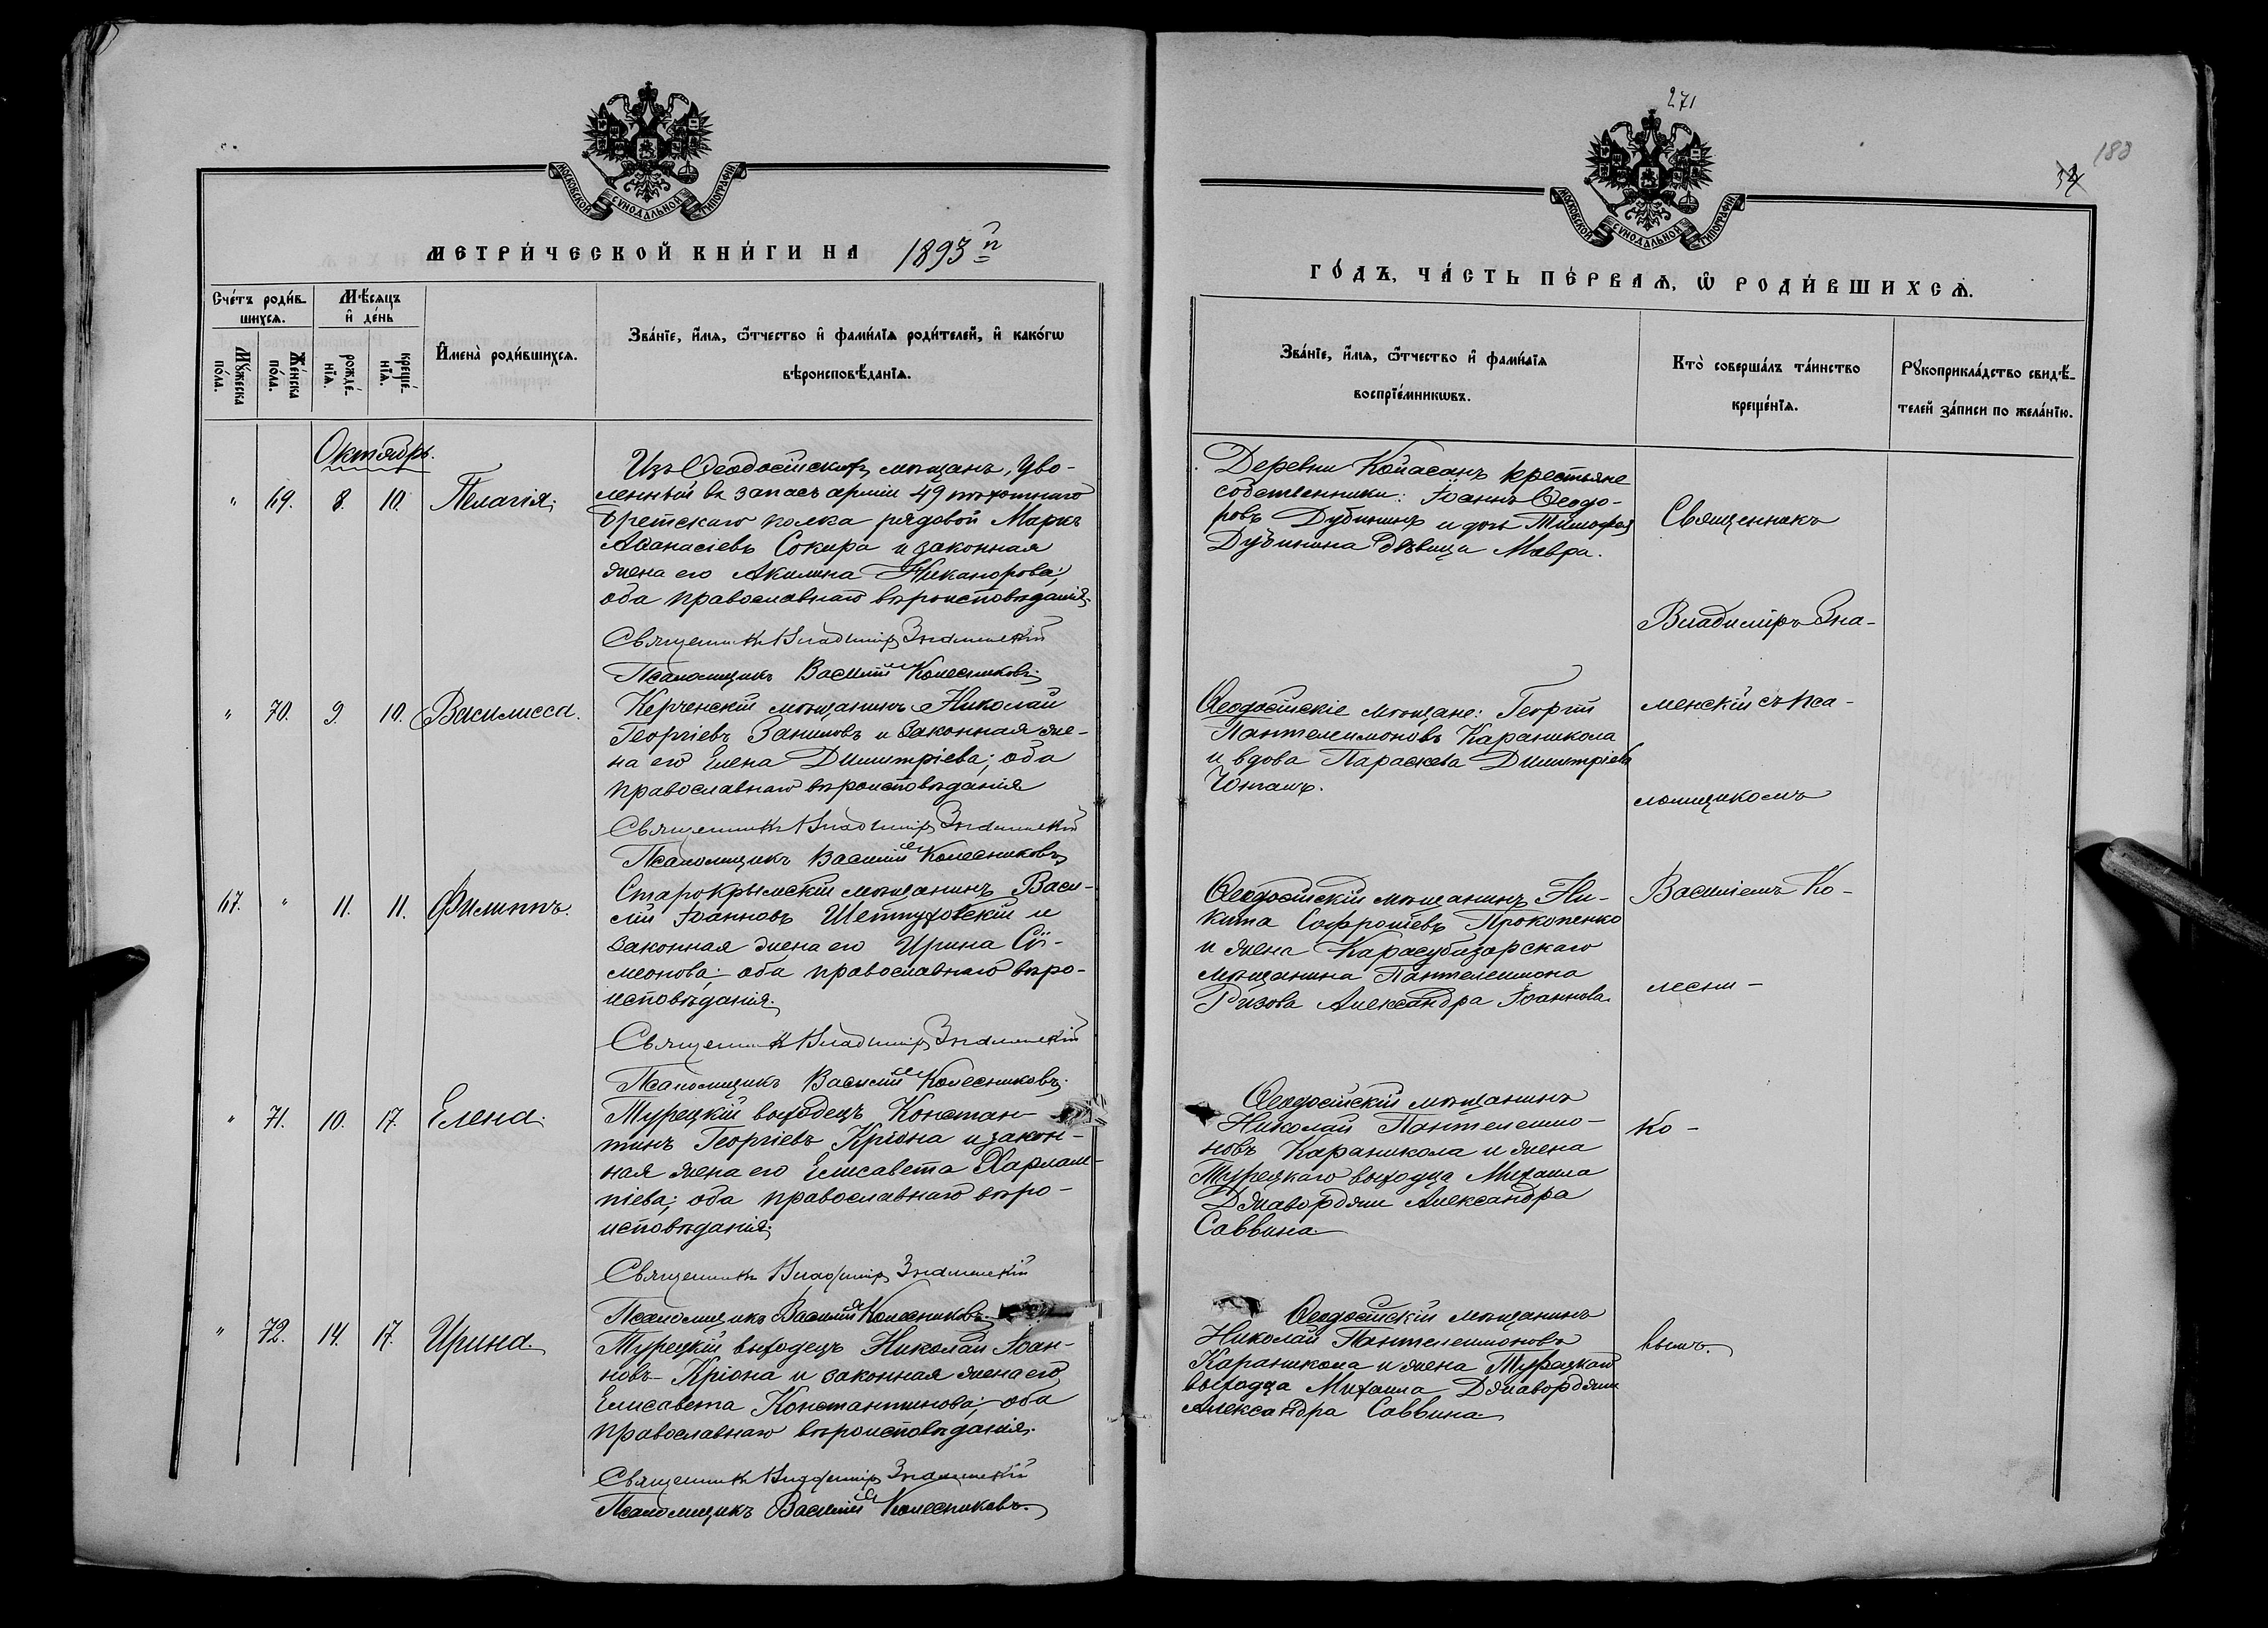 МОСКОВСКОЙ СУНОДАЛЬНОЙ ТИПОГРАФІИ
МЕТРИ́ЧЕСКОЙ КНИ́ГИ НА 1893
Сче́тъ роди́в-
шихсѧ.
Мѣ́сѧцъ
и҆ де́нь
Мꙋ́жеска
по́ла.
Же́нска
по́ла.
рожде́-
нїѧ.
креще́-
нїѧ.
И҆мена̀ роди́вшихсѧ.
Зва́нїе, и҆́мѧ, ѻ҆́тчество и҆ фами́лїѧ роди́телей, и҆ како́гѡ
вѣроисповѣ́данїѧ.
Октябрь.
" 69. 8. 10. Пелагія.
Изъ Ѳеодосійскихъ мѣщанъ, уво-
ленный въ запасъ арміи 49 пѣхотнаго
Брестскаго полка рядовой Маркъ
Аѳанасіевъ Сокира и законная
жена его Акилина Никанорова;
оба православнаго вѣроисповѣданія.
Священникъ Владиміръ Знаменскій
Псаломщикъ Василій Колесниковъ.
" 70. 9. 10. Василисса.
Керченскій мѣщанинъ Николай
Георгіевъ и законная же-
на его Елена Димитріева; оба
православнаго вѣроисповѣданія
Священникъ Владиміръ Знаменскій
Псаломщикъ Василій Колесниковъ
67. " 11. 11. Филиппъ.
Старокрымскій мѣщанинъ Васи-
лій Іоанновъ и
законная жена его Ирина Сѵ-
меонова; оба православнаго вѣро-
исповѣданія.
Священникъ Владиміръ Знаменскій
Псаломщикъ Василій Колесниковъ.
" 71. 10. 17. Елена.
Турецкій выходецъ Констан-
тинъ Георгіевъ Кріона и закон-
ная жена его Елисавета Харлам-
піева; оба православнаго вѣро-
исповѣданія.
Священникъ Владиміръ Знаменскій
Псаломщикъ Василій Колесниковъ.
" 72. 14. 17. Ирина.
Турецкій выходецъ Николай Іоан-
новъ Кріона и законная жена его
Елисавета Константинова; оба
православнаго вѣроисповѣданія.
Священникъ Владиміръ Знаменскій
Псаломщикъ Василій Колесниковъ.
271
183
МОСКОВСКОЙ СУНОДАЛЬНОЙ ТИПОГРАФІИ
ГО́ДЪ, ЧА́СТЬ ПЕ́РВАѦ, Ѡ҆ РОДИ́ВШИХСѦ.
Зва́нїе, и҆́мѧ, ѻ҆́тчество и҆ фами́лїѧ
воспрїе́мникѡвъ.
Кто̀ соверша́лъ та́инство
креще́нїѧ.
Рꙋкоприкла́дство свидѣ́-
телей за́писи по жела́нїю.
Деревни Койасанъ крестьяне
собственники: Іоаннъ Ѳеодо-
ровъ Дубининъ и дочь Тимофея
Дубинина дѣвица Мавра.
Священникъ
Владиміръ Зна-
Ѳеодосійскіе мѣщане: Георгій
Пантелеимоновъ Караникола
и вдова Параскева Димитріева
менскій съ пса-
ломщикомъ
Ѳеодосійскій мѣщанинъ Ни-
кита Софроніевъ Прокопенко
и жена Карасубазарскаго
мѣщанина Пантелеимона
Ризова Александра Іоаннова.
Василіемъ Ко-
лесни-
Ѳеодосійскій мѣщанинъ
Николай Пантелеимо-
новъ Караникола и жена
Турецкаго выходца Михаила
Джавордяли Александра
Саввина
ко-
Ѳеодосійскій мѣщанинъ
Николай Пантелеимоновъ
Караникола и жена Турецкаго
выходца Михаила Джавордяли
Александра Саввина
вымъ.